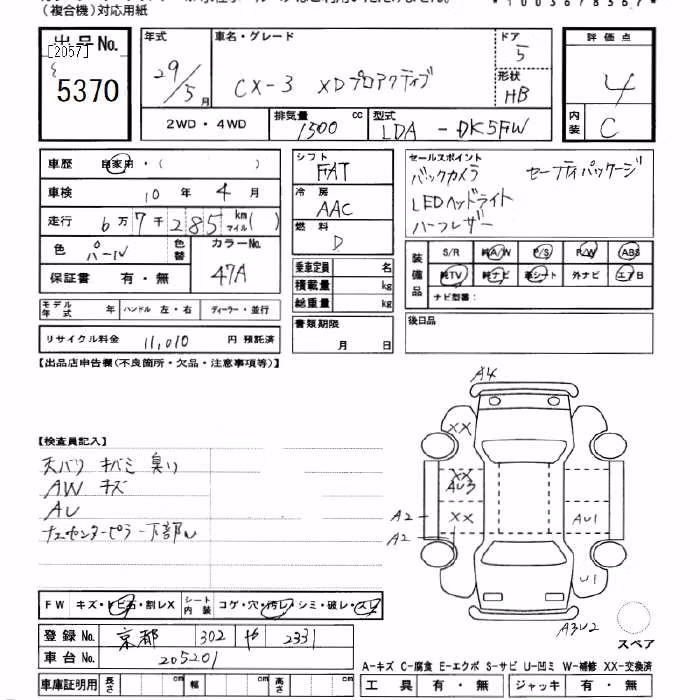 （複合機）対応用紙
出品No.
[2057]
5370
年式
29/5月
車名・グレード
CX-3 XDプロアクティブ
ドア
5
形状
HB
評価点
4
内装
C
2WD・4WD
排気量
1500 cc
型式
LDA-DK5FW
車歴 自家用・( )
車検 10年 4月
走行 6万 7千 285 km マイル ( )
色 パール 色替 カラーNo. 47A
保証書 有・無
モデル年式 年 ハンドル 左・右 ディーラー・並行
リサイクル料金 11,010 円 預託済
シフト
FAT
冷房
AAC
燃料
D
乗車定員 名
積載量 kg
総重量 kg
書類期限
月 日
セールスポイント
バックカメラ セーフティパッケージ
LEDヘッドライト
ハーフレザー
装備品
S/R 純A/W P/S P/W ABS
純TV 純ナビ 革シート 外ナビ エアB
ナビ型番：
後日品
【出品店申告欄(不良箇所・欠品・注意事項等)】
【検査員記入】
天バリ キバミ 臭い
AW キズ
AU
FW キズ・トビ石・割レX
シート内装 コゲ・穴・汚レ・シミ・破レ・スレ
登録No. 京都 302 や 2331
車台No. 205201
車庫証明用 長さ cm 幅 cm 高さ cm
A4
XX
XX
AU3
XX
A2
A2
AU1
U1
A3U2
スペア
A-キズ C-腐食 E-エクボ S-サビ U-凹ミ W-補修 XX-交換済
工具 有・無 ジャッキ 有・無